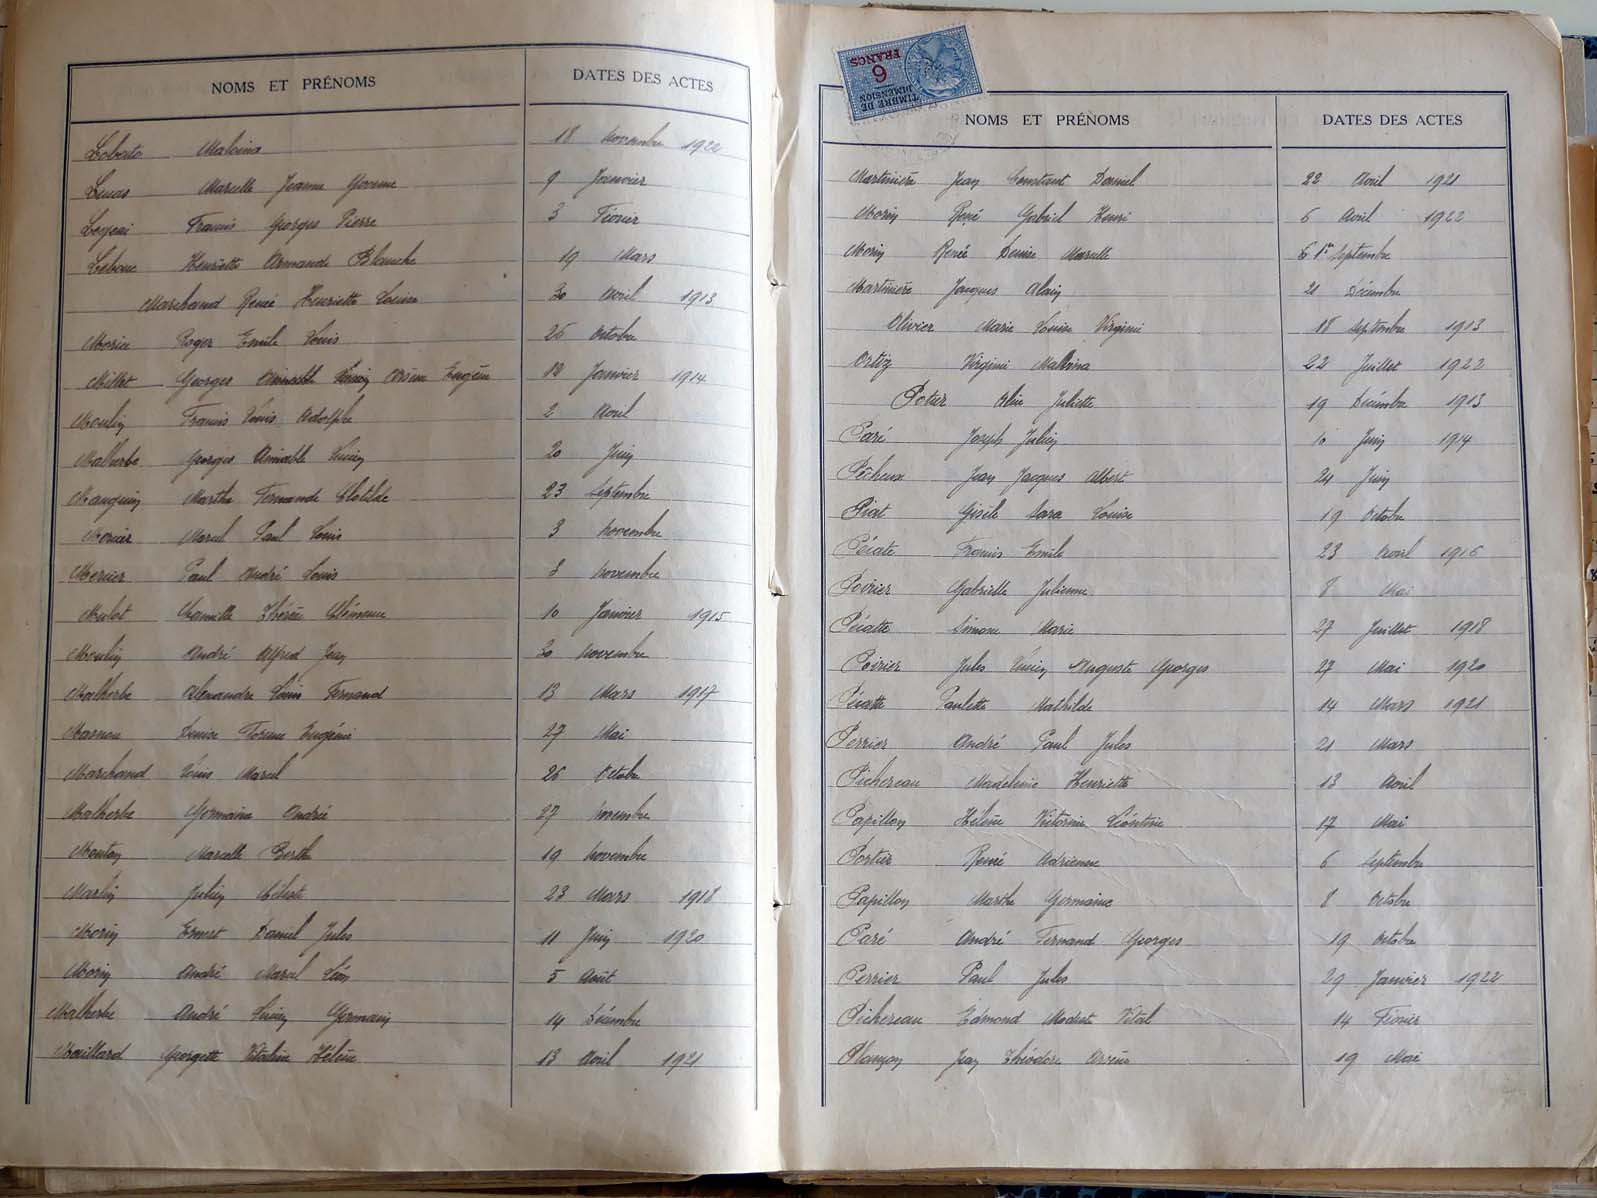 NOMS ET PRÉNOMS DATES DES ACTES
Lobato Malvina 18 Novembre 1922
Lucas Marcelle Jeanne 9 Janvier
Francis Georges Pierre 3 Février
Henriette Armande Blanche 19 Mars
Marchand René Henriette Louise 30 Avril 1913
Morin Roger Emile Louis 26 Octobre
Millet Georges Eugène 12 Janvier 1914
Moulin Francis Louis Adolphe 2 Avril
Malherbe Georges Aimable Lucien 20 Juin
Mauguin Marthe Fernande Clotilde 23 Septembre
Mercier Marcel Paul Louis 3 Novembre
Mercier Paul André Louis 3 Novembre
Mulot Camille Thérèse Clémence 10 Janvier 1915
Moulin André Alfred Jean 30 Novembre
Malherbe Alexandre Louis Fernand 13 Mars 1917
Denise Eugénie 27 Mai
Marchand Louis Marcel 26 Octobre
Malherbe Germaine André 27 Novembre
Mouton Marcelle Berthe 19 Novembre
Martin Julien 23 Mars 1918
Morin Ernest Daniel Jules 11 Juin 1920
Morin André Marcel Léon 5 Août
Malherbe André Lucien Germain 14 Décembre
Maillard Georgette Hélène 13 Avril 1921
TIMBRE DE
DIMENSION
6
FRANCS
NOMS ET PRÉNOMS DATES DES ACTES
Martinière Jean Constant Daniel 22 Avril 1921
Morin René Gabriel Henri 6 Avril 1922
Morin René Denise Marcelle Septembre
Martinière Jacques Alain 21 Décembre
Olivier Marie Louise Virginie 18 Septembre 1913
Ortiz Virginie Malvina 22 Juillet 1922
Potier Juliette 19 Décembre 1913
Paré Joseph Julien 10 Juin 1914
Pécheux Jean Jacques Albert 24 Juin
Piat Gisèle Sara Louise 19 Octobre
Péiatte Francis Emile 23 Avril 1916
Poirier Gabrielle Julienne 8 Mai
Péiatte Simone Marie 27 Juillet 1918
Poirier Jules Lucien Auguste Georges 27 Mai 1920
Péiatte Paulette Mathilde 14 Mars 1921
Perrier André Paul Jules 21 Mars
Pichereau Madeleine Henriette 13 Avril
Papillon Hélène Victorine Léontine 17 Mai
Portier René Adrienne 6 Septembre
Papillon Marthe Germaine 8 Octobre
Paré André Fernand Georges 19 Octobre
Perrier Paul Jules 29 Janvier 1922
Pichereau Edmond Modeste Vital 14 Février
Plançon Jean Théodore Arsène 19 Mai